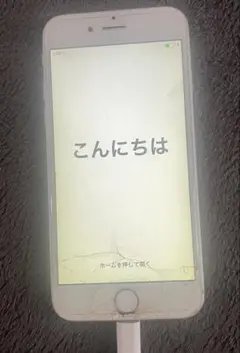 こんにちは
ホームを押して開く